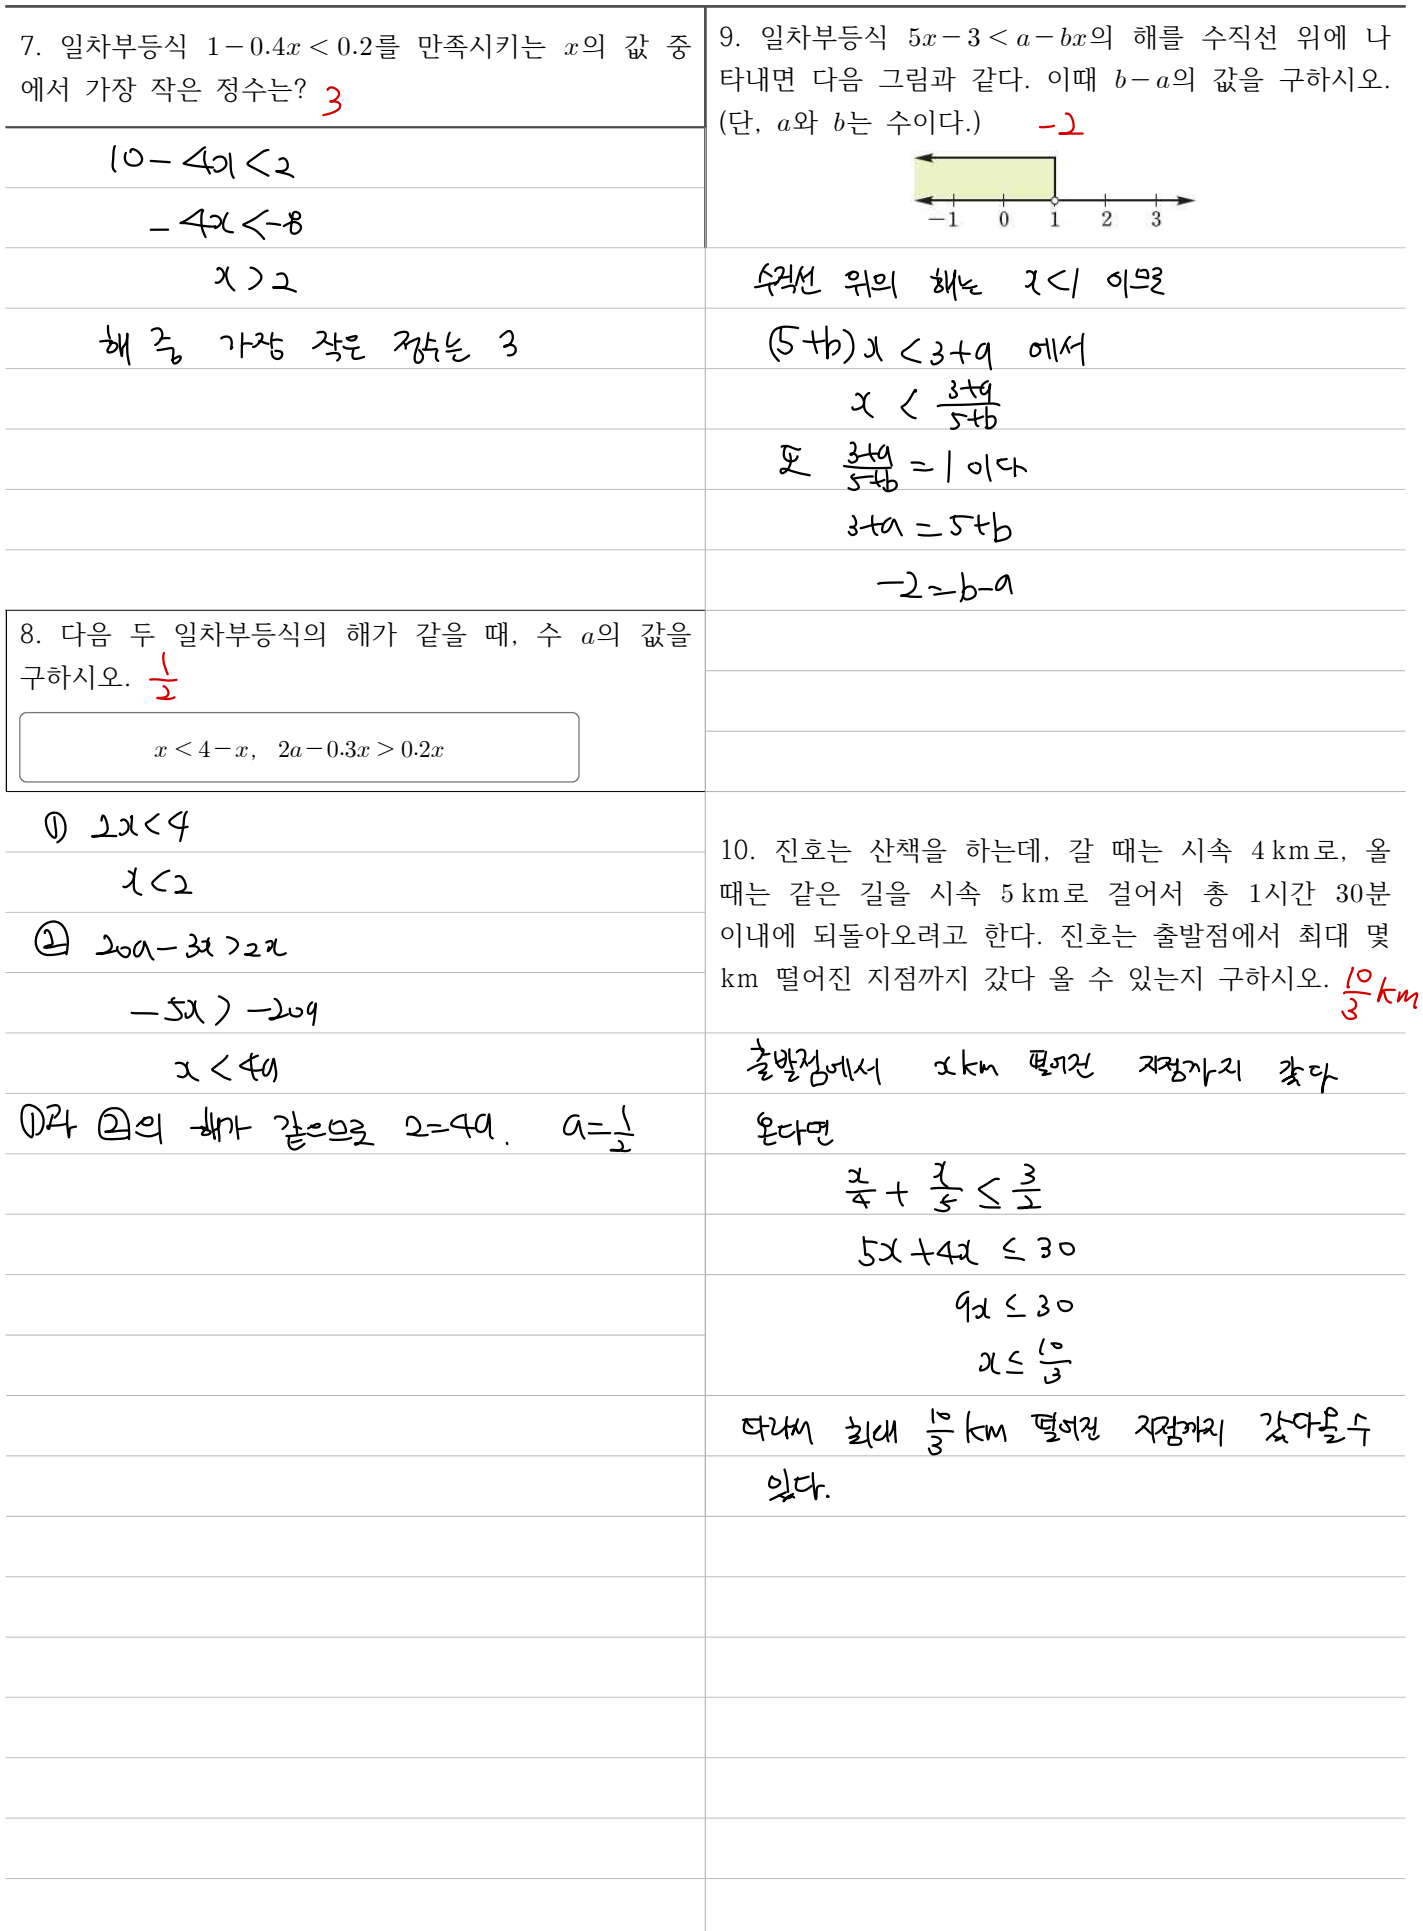 7. 일차부등식 1-0.4x<0.2를 만족시키는 x의 값 중
에서 가장 작은 정수는? 3
10-4x<2
-4x<-8
x>2
해 중 가장 작은 정수는 3
8. 다음 두 일차부등식의 해가 같을 때, 수 a의 값을
구하시오. 1/2
x<4-x, 2a-0.3x>0.2x
① 2x<4
x<2
② 20a-3x>2x
-5x>-20a
x<4a
①과 ②의 해가 같으므로 2=4a. a=1/2
9. 일차부등식 5x-3<a-bx의 해를 수직선 위에 나
타내면 다음 그림과 같다. 이때 b-a의 값을 구하시오.
(단, a와 b는 수이다.) -2
-1 0 1 2 3
수직선 위의 해는 x<1 이므로
(5+b)x<3+a 에서
x < (3+a)/(5+b)
또 (3+a)/(5+b) = 1 이다
3+a=5+b
-2=b-a
10. 진호는 산책을 하는데, 갈 때는 시속 4km로, 올
때는 같은 길을 시속 5km로 걸어서 총 1시간 30분
이내에 되돌아오려고 한다. 진호는 출발점에서 최대 몇
km 떨어진 지점까지 갔다 올 수 있는지 구하시오. 10/3 km
출발점에서 xkm 떨어진 지점까지 갔다
온다면
x/4 + x/5 ≤ 3/2
5x+4x ≤ 30
9x ≤ 30
x ≤ 10/3
따라서 최대 10/3 km 떨어진 지점까지 갔다올 수
있다.